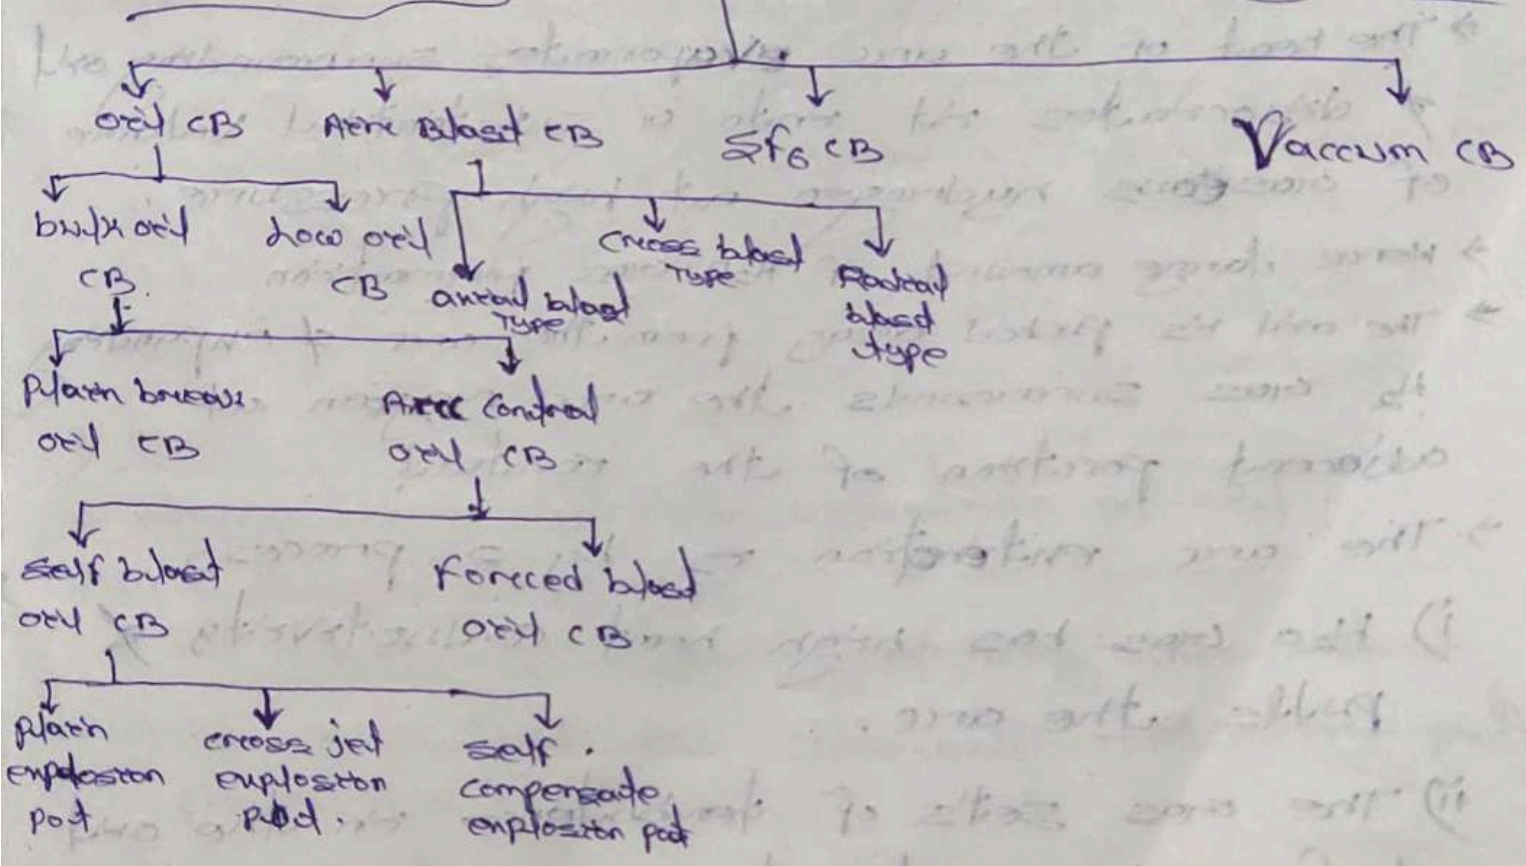 oil CB
Air Blast CB
SF6 CB
Vaccum CB
bulk oil
CB
Low oil
CB
axial blast
Type
cross blast
Type
Radial
blast
type
Plain break
oil CB
Arc Control
oil CB
Self blast
oil CB
Forced blast
oil CB
Plain
explosion
pot
cross jet
explosion
pot.
Self
compensate
explosion pot